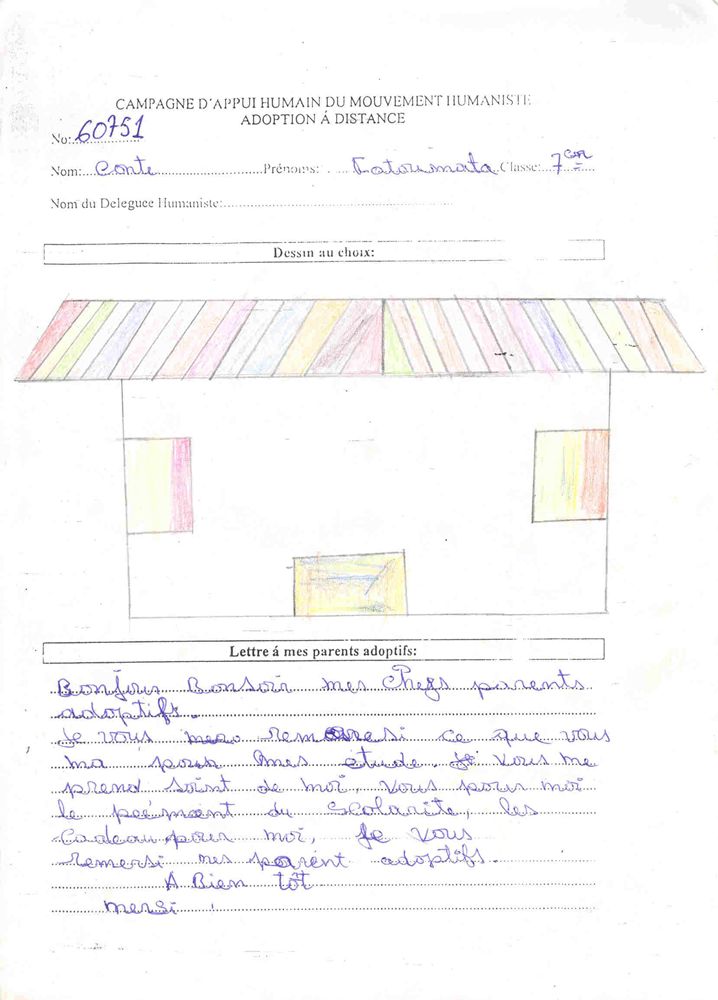 CAMPAGNE D'APPUI HUMAIN DU MOUVEMENT HUMANISTE
ADOPTION Á DISTANCE
No: 60751
Nom: Conte Prénoms: Fatoumata Classe: 7
Nom du Deleguee Humaniste:
Dessin au choix:
Lettre á mes parents adoptifs:
Bonjour Bonsoir mes Chegs parents
adoptifs.
Je vous remercsi ce que vous
ma pour mes etude. Je Vous me
prend soint de moi, Vous pour moi
le peémænt du Scolarite, les
Cadeau pour moi, Je Vous
remersi mes parént adoptifs.
A Bien tôt
mersi !